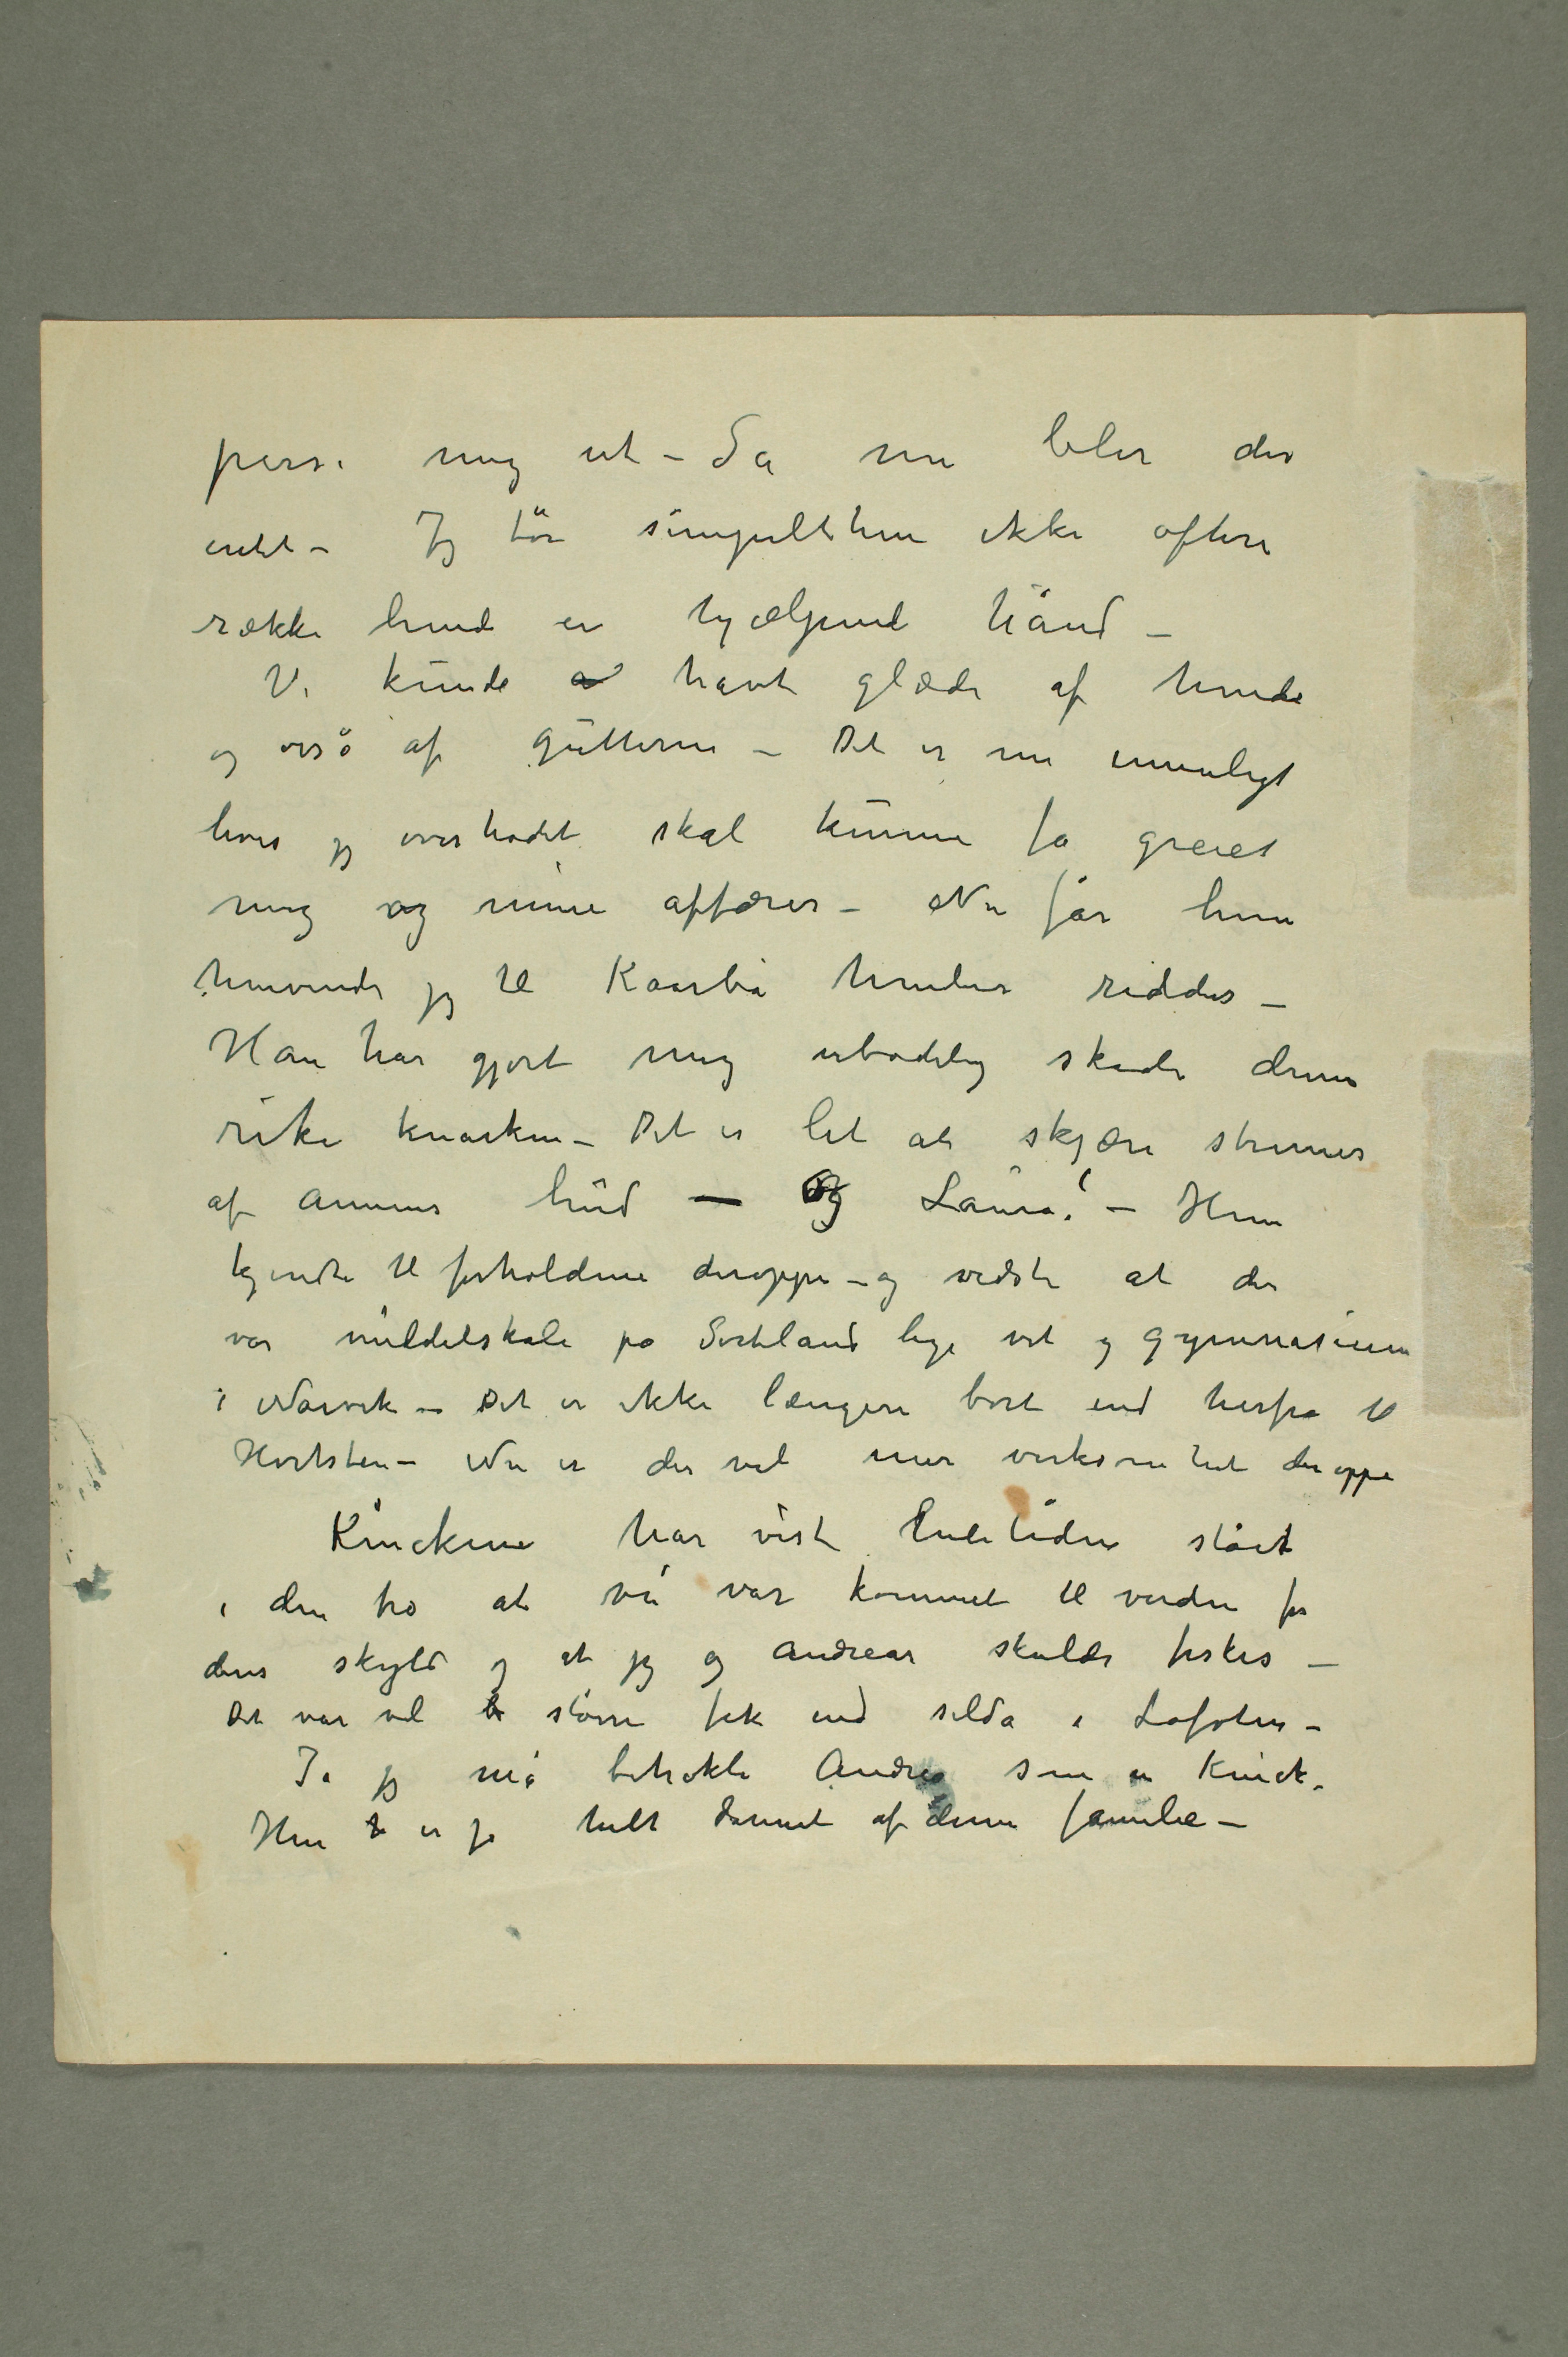 perse mig ut – Så nu blir der
intet – Jeg tör simpelthen ikke oftere
række hende en hjælpende hånd –
Vi kunde havt glæde af hende
og osså af gutterne – Det er nu umuligt
hvis jeg overhodet skal kunne få greiet
mig og mine affærer – Nu får hun
henvende sig til Kaarbø hendes ridder –
Han har gjort mig ubodelig skade denne
rike knarken – Det er let at skjære strimer
af annens hud — Og Laura! – Hun
kjendte til forholdene deroppe – og vidste at der
var middelskole på Sortland lige vet og gymnasium
i Narvik – Det er ikke længere bort end herfra til
Hvitsten – Nu er der vel mer virksomhet deroppe
Kinckene har vist hele tiden stået
i den tro at vi var kommet til verden for
deres skyld og at jeg og Andreas skulde fiskes –
Det var vel större fisk end silda i Lofoten –
Ja jeg må betrakte Andrea som en Kinck.
Hun er jo helt dannet af denne familie –